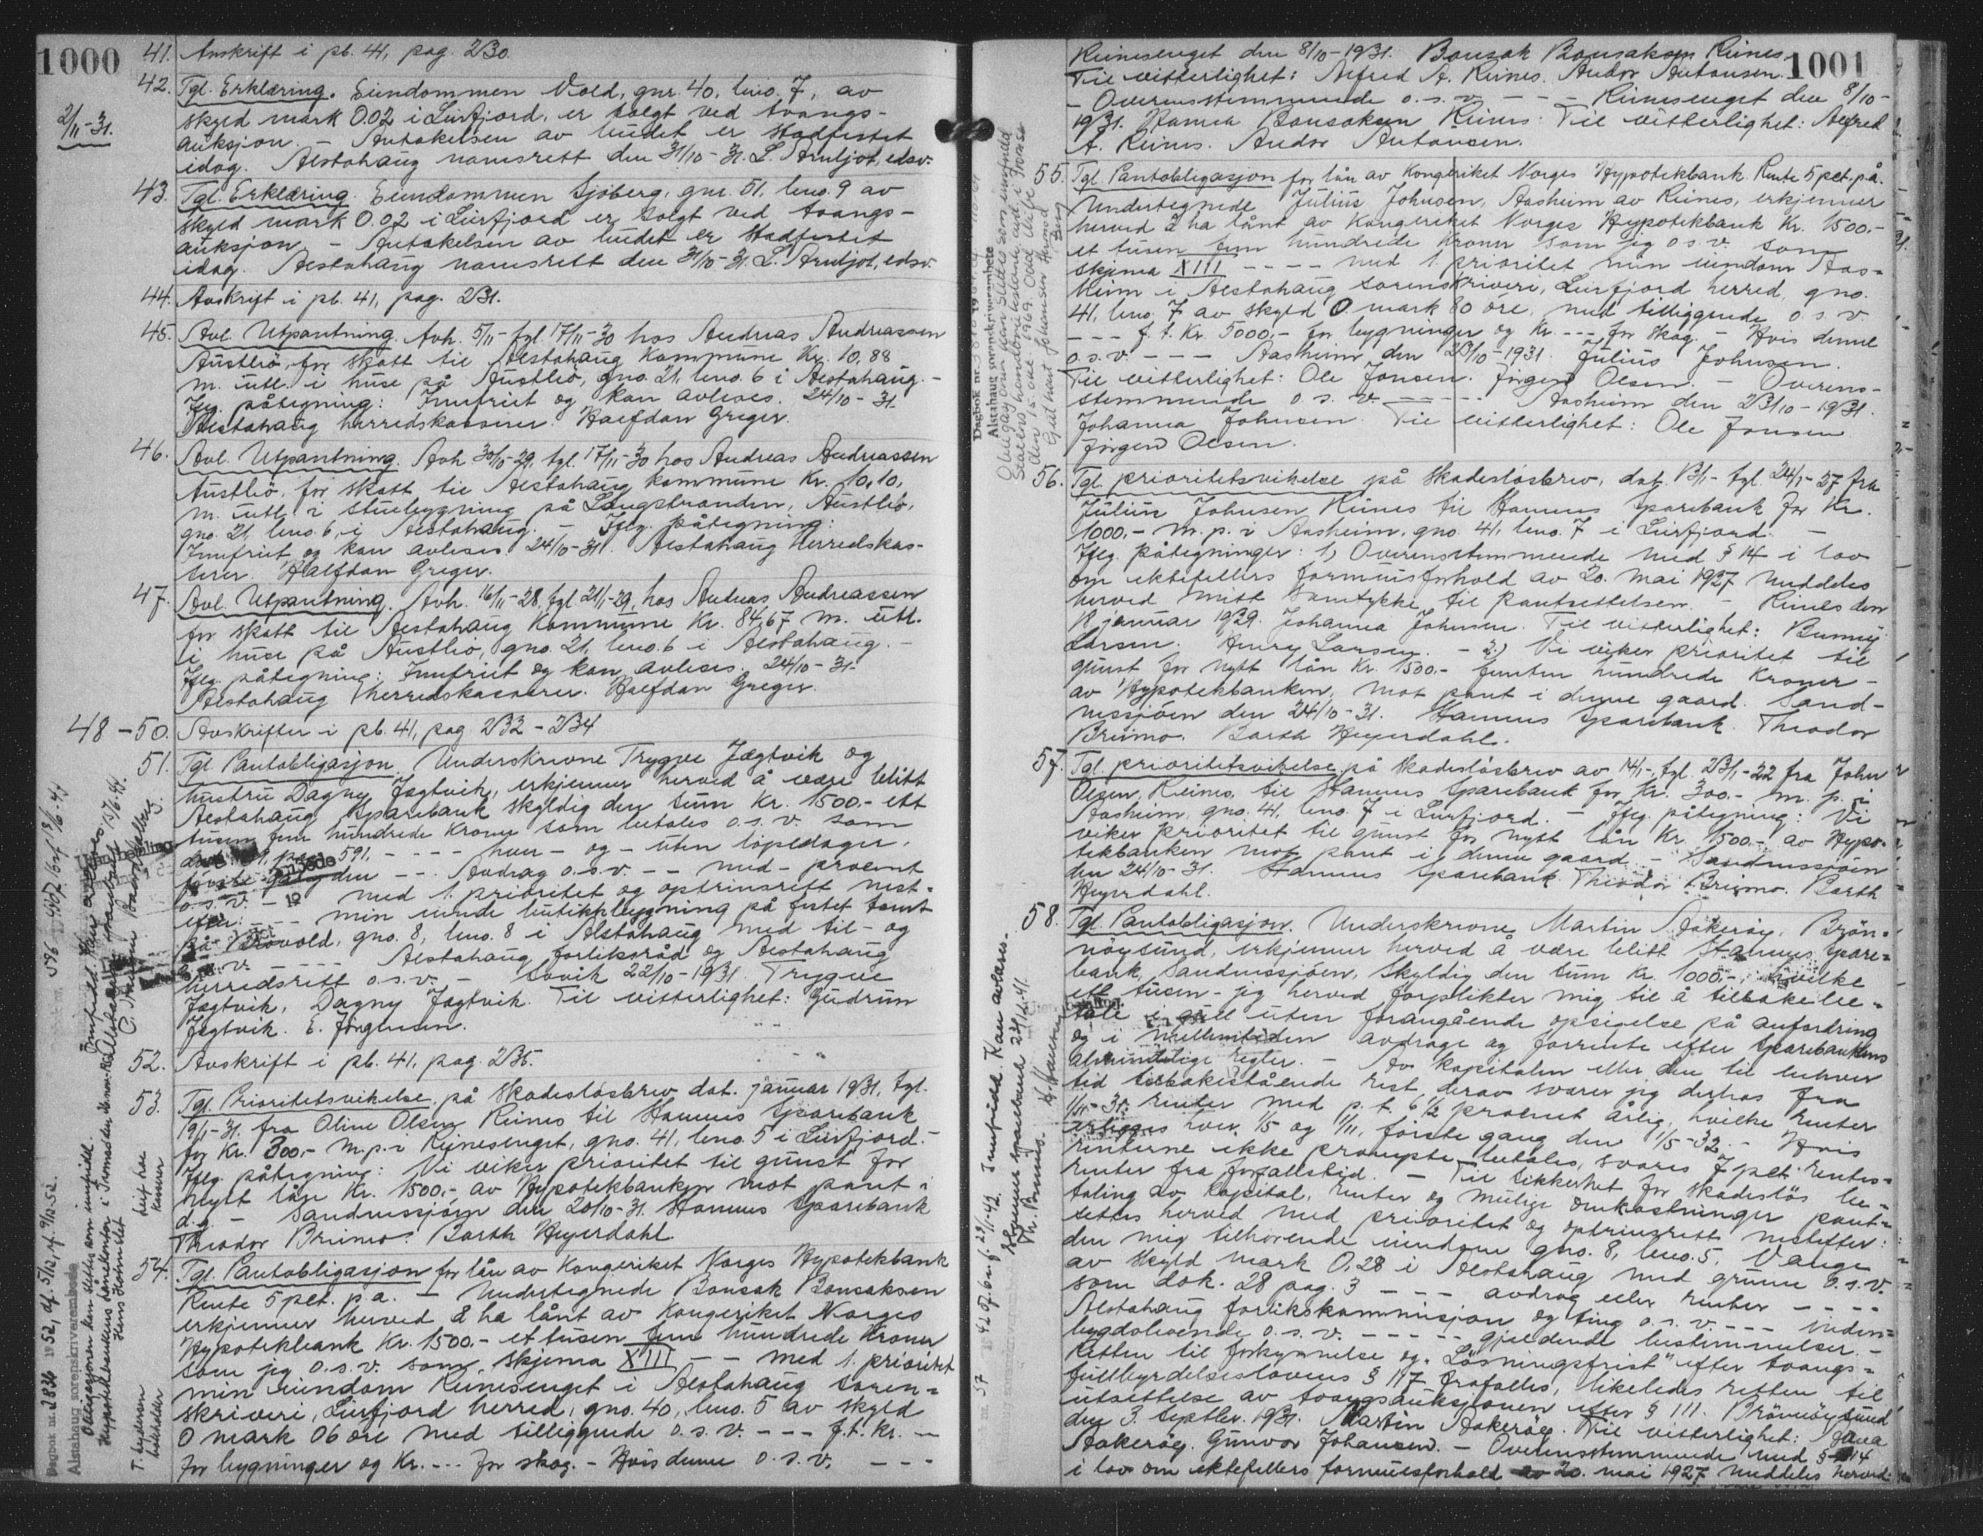 1000
2/11-31.
41. Avskrift i pb. 41, pag. 230.
42. Tgl. Erklæring. Eiendommen Vold, gnr. 40, bno. 7, av
skyld mark 0.02 i Leirfjord, er solgt ved tvangs-
auksjon. - Antakelsen av budet er stadfestet
idag. Alstahaug namsrett den 31/10-31. L. Arntjot, edsv.
43. Tgl. Erklæring. Eiendommen Sjöberg, gnr. 51, bno. 9 av
skyld mark 0.02 i Leirfjord er solgt ved tvangs-
auksjon - Antakelsen av budet er stadfestet
idag. Alstahaug namsrett den 31/10-31. L. Arntjot, edsv.
44. Avskrift i pb. 41, pag. 231.
45. Avl. Utpantning. Avh. 5/11- tgl. 17/11-30 hos Andreas Andreassen
Austbö, for skatt til Alstahaug kommune Kr. 10,88
m. utl. i huse på Austbö, gno. 21, bno. 6 i Alstahaug. -
Jfg. påtegning: Innfriet og kan avleses. 24/10-31.
Alstahaug herredskasserer. Halfdan Greger.
46. Avl. Utpantning. Avh. 30/10-29, tgl. 17/11-30 hos Andreas Andreassen
Austbö, for skatt til Alstahaug kommune Kr. 10,10,
m. utl. i stuebygning på Langstranden, Austbö,
gno. 21, bno. 6, i Alstahaug. - Jfg. påtegning:
Innfriet og kan avleses. 24/10-31. Alstahaug herredskas-
serer. Halfdan Greger.
47. Avl. Utpantning. Avh. 16/11-28, tgl. 21/1-29, hos Andreas Andreassen
for skatt til Alstahaug kommune Kr. 84,67 m. utl.
i huse på Austbö, gno. 21, bno. 6 i Alstahaug. -
Jfg. påtegning: Innfriet og kan avleses. 24/10-31.
Alstahaug herredskasserer. Halfdan Greger.
48-50. Avskrifter i pb. 41, pag 232-234
51. Tgl. Pantobligasjon. Underskrevne Trygve Jægtvik og
hustru Dagny Jægtvik, erkjenner herved å være blitt
Alstahaug Sparebank skyldig den sum Kr. 1500.- ett
tusen fem hundrede kroner som betales o.s.v. som
591. - - - - hver - og - uten löpedager.
den - - - Avdrag o.s.v. - - med - procent
o.s.v. - - med 1. prioritet og optrinsrett nest-
efter: - - - min eiende butikkbygning på festet tomt
på Brövold, gno. 8, bno. 8 i Alstahaug med til- og
- - - - Alstahaug forliksråd og Alstahaug
herredsrett o.s.v. - Sövik 22/10-1931. Trygve
Jægtvik, Dagny Jægtvik. Til vitterlighet: Gudrun
Jægtvik. E. Jörgensen.
52. Avskrift i pb. 41, pag. 235.
53. Tgl. Prioritetsvikelse på skadeslösbrev, dat. januar 1931, tgl.
19/1-31. fra Oline Olsen Reines til Stamnes Sparebank
for Kr. 300,- m.p. i Reinesenget, gno. 41, bno. 5 i Leirfjord. -
Jfg. påtegning: Vi viker prioritet til gunst for
nytt lån Kr. 1500.- av Hypotekbanken mot pant i
d.g. - Sandnessjöen den 20/10-31. Stamnes Sparebank
Theodor Brinmo. Barth Heyerdahl.
54. Tgl. Pantobligasjon for lån av Kongeriket Norges Hypotekbank
Rente 5 pct. p.a. - Undertegnede Bonsak Bonsaksen
erkjenner herved å ha lånt av Kongeriket Norges
Hypotekbank Kr. 1500.- et tusen fem hundrede kroner
som jeg o.s.v. som skjema XIII - - med 1. prioritet
min eiendom Reinesenget i Alstahaug soren-
skriveri, Leirfjord herred, gno. 40, bno. 5 av skyld
0 mark 06 öre med tilliggende o.s.v. - - - f.t. Kr. -
for bygninger og Kr. - - - for skog. - Hvis denne o.s.v. - - -
Innfridd. Kan avleses
Dagbok nr. 2836 1952, df. 5/12, rf. 9/12-52.
Alstahaug sorenskriverembede
Obligasjonen kan slettes som innfridd.
Hypotekbankens lånekontor i Tromsö den
Hans Homstet
1001
Reinesenget den 8/10-1931. Bonsak Bonsaksen Reines.
Til vitterlighet: Alfred A. Reines. Andor Antonsen.
- Overensstemmende o.s.v. - - - Reinesenget den 8/10-
1931. Hanna Bonsaksen Reines. Til vitterlighet: Alfred
A. Reines. Andor Antonsen.
55. Tgl. Pantobligasjon for lån av Kongeriket Norges Hypotekbank. Rente 5 pct. p.å.
Undertegnede Julius Johnsen, Aasheim av Reines, erkjenner
herved å ha lånt av Kongeriket Norges Hypotekbank Kr. 1500.-
et tusen fem hundrede kroner som jeg o.s.v. som
skjema XIII - - - - med 1. prioritet min eiendom Aas-
heim i Alstahaug sorenskriveri, Leirfjord herred, gno.
41, bno. 7 av skyld 0 mark 80 öre, med tilliggende o.s.v.
- - - f.t. Kr. 5000,- for bygninger og Kr. - - - for skog. - Hvis denne
o.s.v. - - - Aasheim den 23/10-1931. Julius Johnsen.
Til vitterlighet: Ole Jonsen. Jörgen Olsen. - Overens-
stemmende o.s.v. - - - - Aasheim den 23/10-1931.
Johanna Johnsen. Til vitterlighet: Ole Jonsen
Jörgen Olsen.
56. Tgl. prioritetsvikelse på skadeslösbrev, dat. 13/1- tgl. 24/1-27 fra
Julius Johnsen, Reines til Stamnes Sparebank for Kr.
1000,- m.p. i Aasheim, gno. 41, bno. 7 i Leirfjord. -
Jfg. påtegninger: 1.) Overensstemmende med § 14 i lov
om ektefellers formuesforhold av 20. mai 1927 meddeles
herved mitt samtykke til pantsettelsen. - Reines den
18 januar 1929. Johanna Johnsen. Til vitterlighet:
Larsen. Henry Larsen. - 2.) Vi viker prioritet til
gunst for nytt lån Kr. 1500.- femten hundrede kroner -
av Hypotekbanken, mot pant i denne gaard. Sand-
nessjöen den 24/10-31. Stamnes Sparebank. Theodor
Brinmo. Barth Heyerdahl.
57. Tgl. prioritetsvikelse på skadeslösbrev av 14/1-, tgl. 23/1-22 fra John
Olsen, Reines, til Stamnes Sparebank for Kr. 300.- m.p. i
Aasheim, gno. 41, bno. 7 i Leirfjord. - Jfg. påtegning: Vi
viker prioritet til gunst for nytt lån Kr. 1500.- av Hypo-
tekbanken mot pant i denne gaard. - Sandnessjöen
den 24/10-31. Stamnes Sparebank. Theodor Brinmo. Barth
Heyerdahl.
58. Tgl. Pantobligasjon. Underskrevne Martin Aakeröy, Brön-
nöysund, erkjenner herved å være blitt Stamnes Spare-
bank, Sandnessjöen, skyldig den sum Kr. 1000.-, hvilke
ett tusen - jeg herved forplikter mig til å tilbakebe-
tale i gull uten forangående opsigelse på anfordring
og i mellemtiden avdrage og forrente efter sparebankens
almindelige regler. - Av kapitalen eller den til enhver
tid tilbakestående rest derav svarer jeg dertros fra
1/11-31. renter med p.t. 6 1/2 procent årlig, hvilke renter
erlegges hver 1/5 og 1/11, förste gang den 1/5-32. - Hvis
renterne ikke prompte betales, svares 7 pct. rentes-
renter fra forfallstid. - Til sikkerhet for skadeslös be-
taling av kapital, renter og mulige omkostninger pant-
settes herved med prioritet og optrinsrett nestefter:
den mig tilhörende eiendom gno. 8, bno. 5, Vange
av skyld mark 0,28 i Alstahaug med grunn o.s.v.
som dok. 28 pag. 3 - - - avdrag eller renter - - - -
Alstahaug forlikskommisjon og ting o.s.v. - - - inden-
bygdsboende o.s.v. - - - - - gjeldende bestemmelser. -
Retten til forkynnelse og "Lösningsfrist" efter tvangs-
fullbyrdelseslovens § 117 frafalles, likeledes retten til
utsettelse av tvangsauksjonen efter § 111. Brönnöysund
den 3. septbr. 1931. Martin Aakeröy. Til vitterlighet:
Aakeröy. Gunvor Johansen. - Overensstemmende med § 14
i lov om ektefellers formuesforhold av 20. mai 1927 meddeles herved
Alstahaug sorenskriverembete
Innfridd. Kan avleses.
Stamnes Sparebank 23/12-41.
Th. Brinmo.